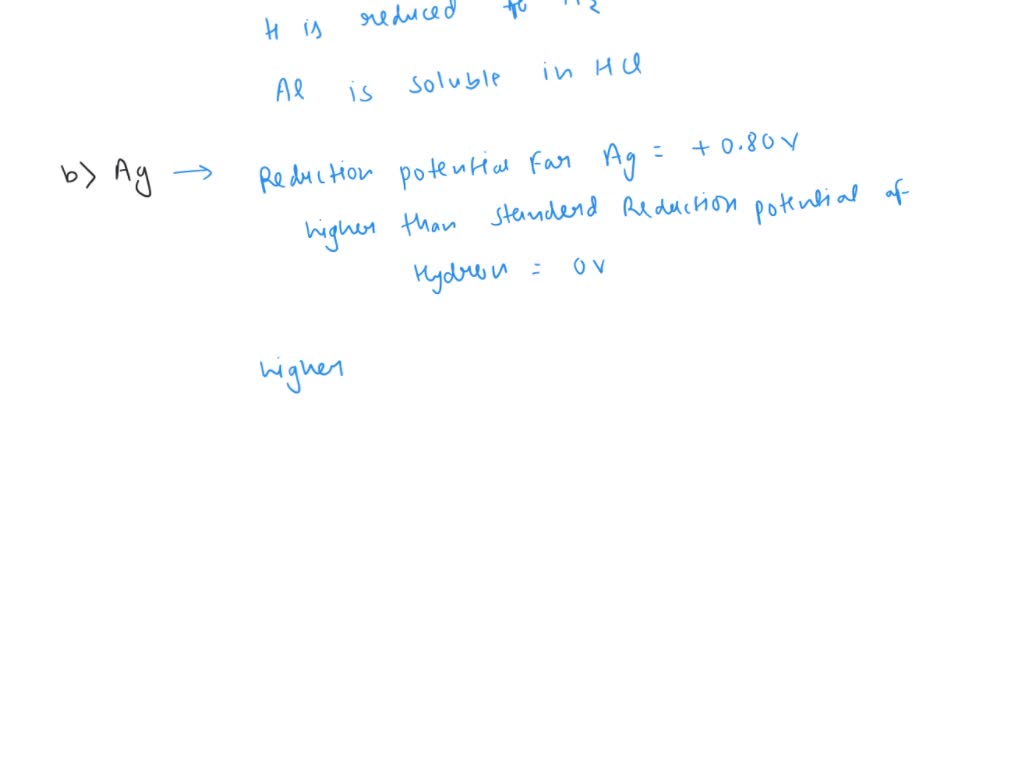 H is reduced to H2
Al is soluble in HCl
b) Ag → Reduction potential for Ag = + 0.80 V
higher than standerd Reduction potential of
Hydren = 0 V
higher